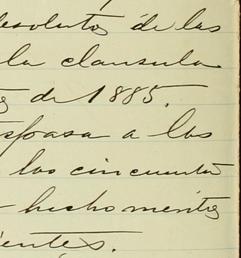 esoluto de las
la clausula
de 1885.
spasa a los
los cincuenta
hecho mérito
ientes.